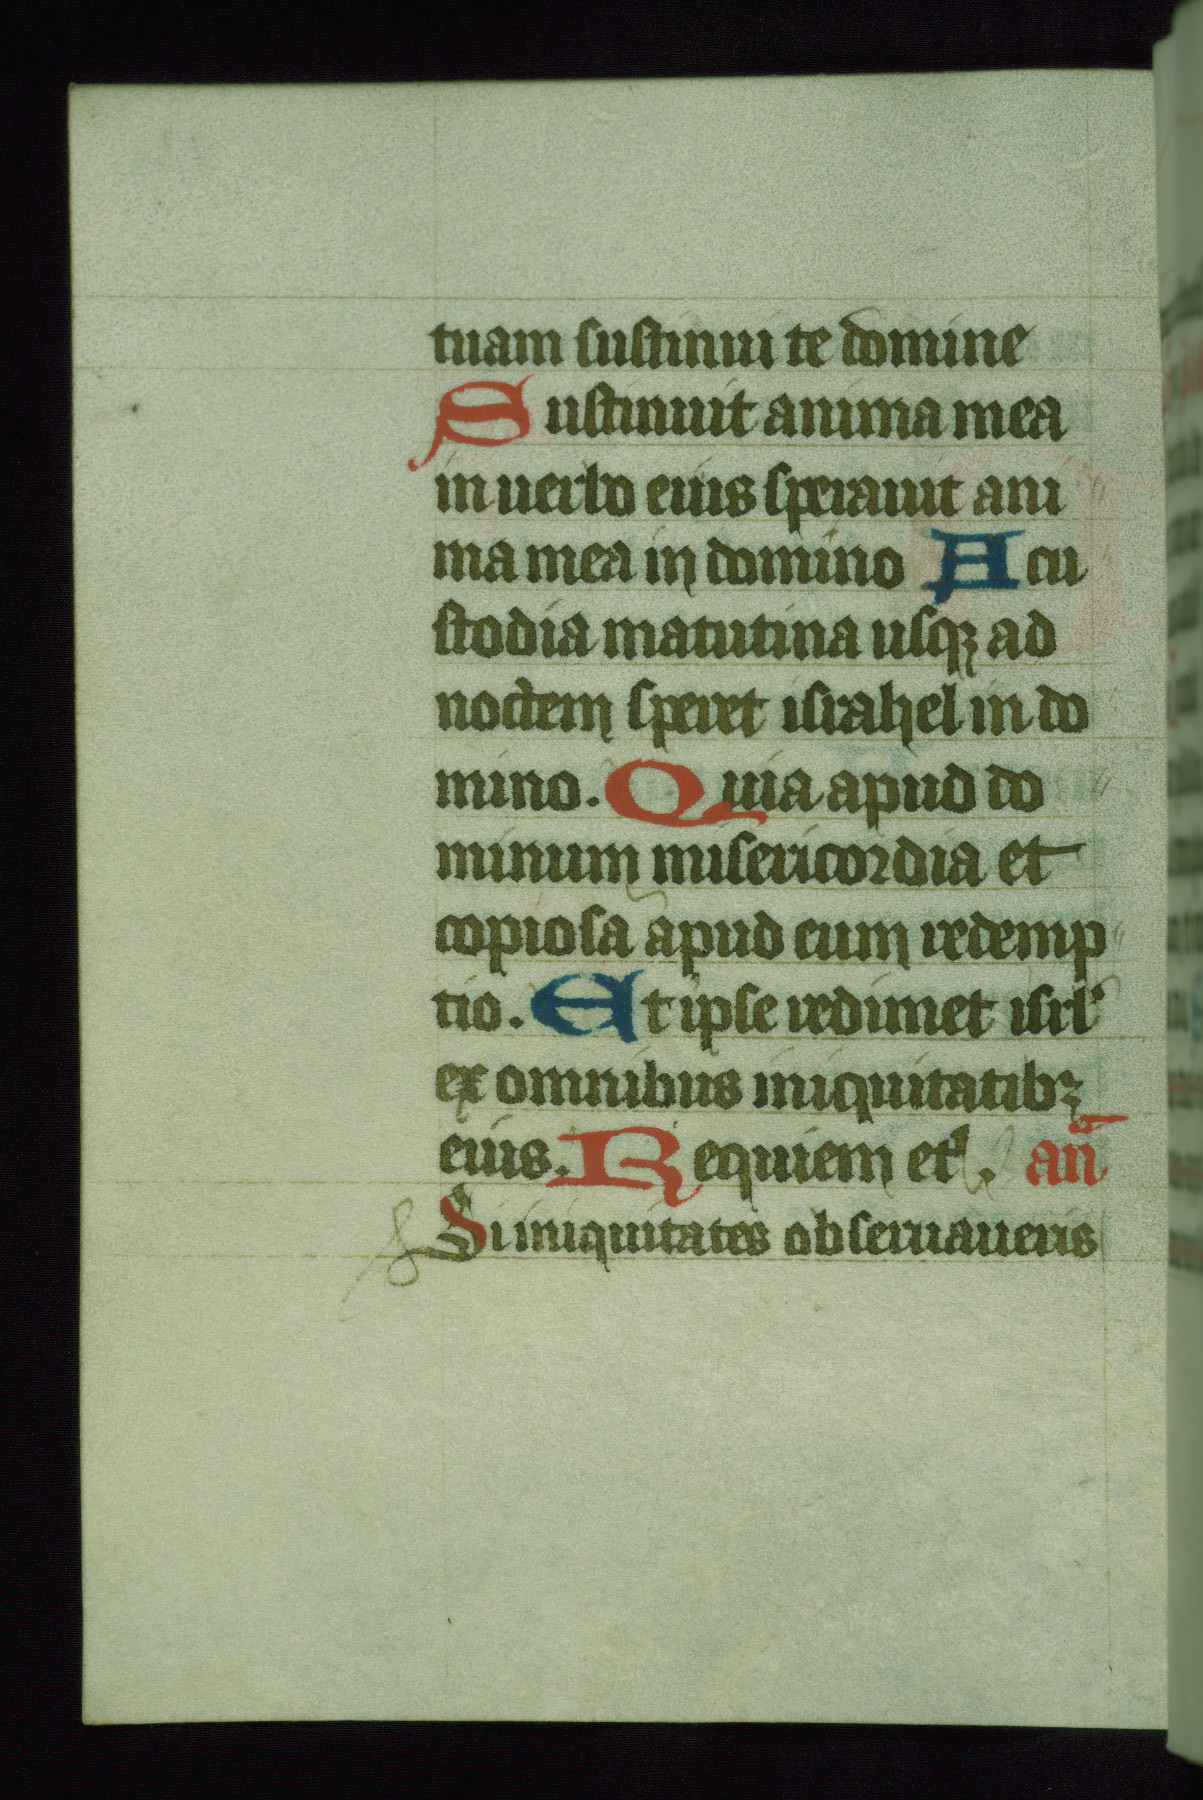 tuam sustinui te domine
Sustinuit anima mea
in uerbo eius sperauit ani
ma mea in domino A cu
stodia matutina usqꝫ ad
noctem speret israhel in do
mino. Quia apud do
minum misericordia et
copiosa apud eum redemp
tio. Et ipse redimet isrl'
ex omnibus iniquitatibꝫ
eius. Requiem et'. an̄
Si iniquitates obseruaueris